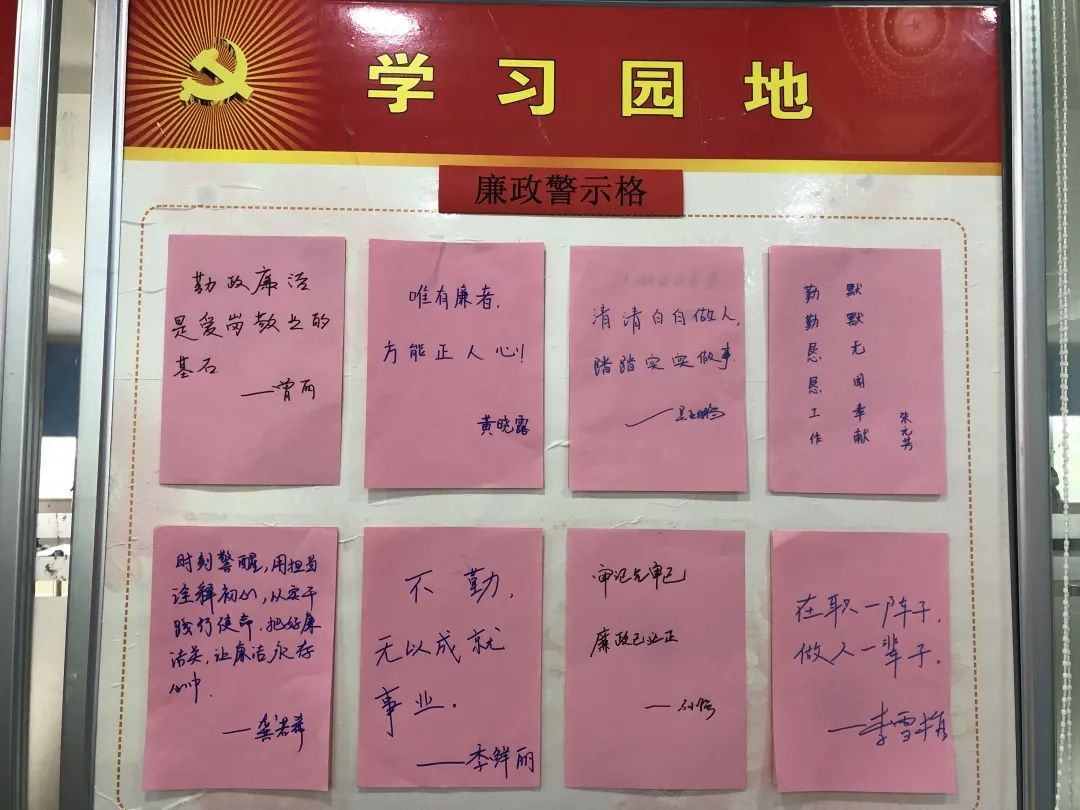 学习园地
廉政警示格
勤政廉洁
是爱岗敬业的
基石
——曾丽
唯有廉者，
方能正人心！
黄晓露
清清白白做人，
踏踏实实做事
默默无闻奉献
勤勤恳恳工作
张元芳
时刻警醒，用担当
诠释初心，从实干
践行使命，把好廉
洁关，让廉洁永存
心中.
不勤，
无以成就
事业.
——季鲜丽
审記先审己
廉政己必正
在职一阵子，
做人一辈子.
——李雪梅